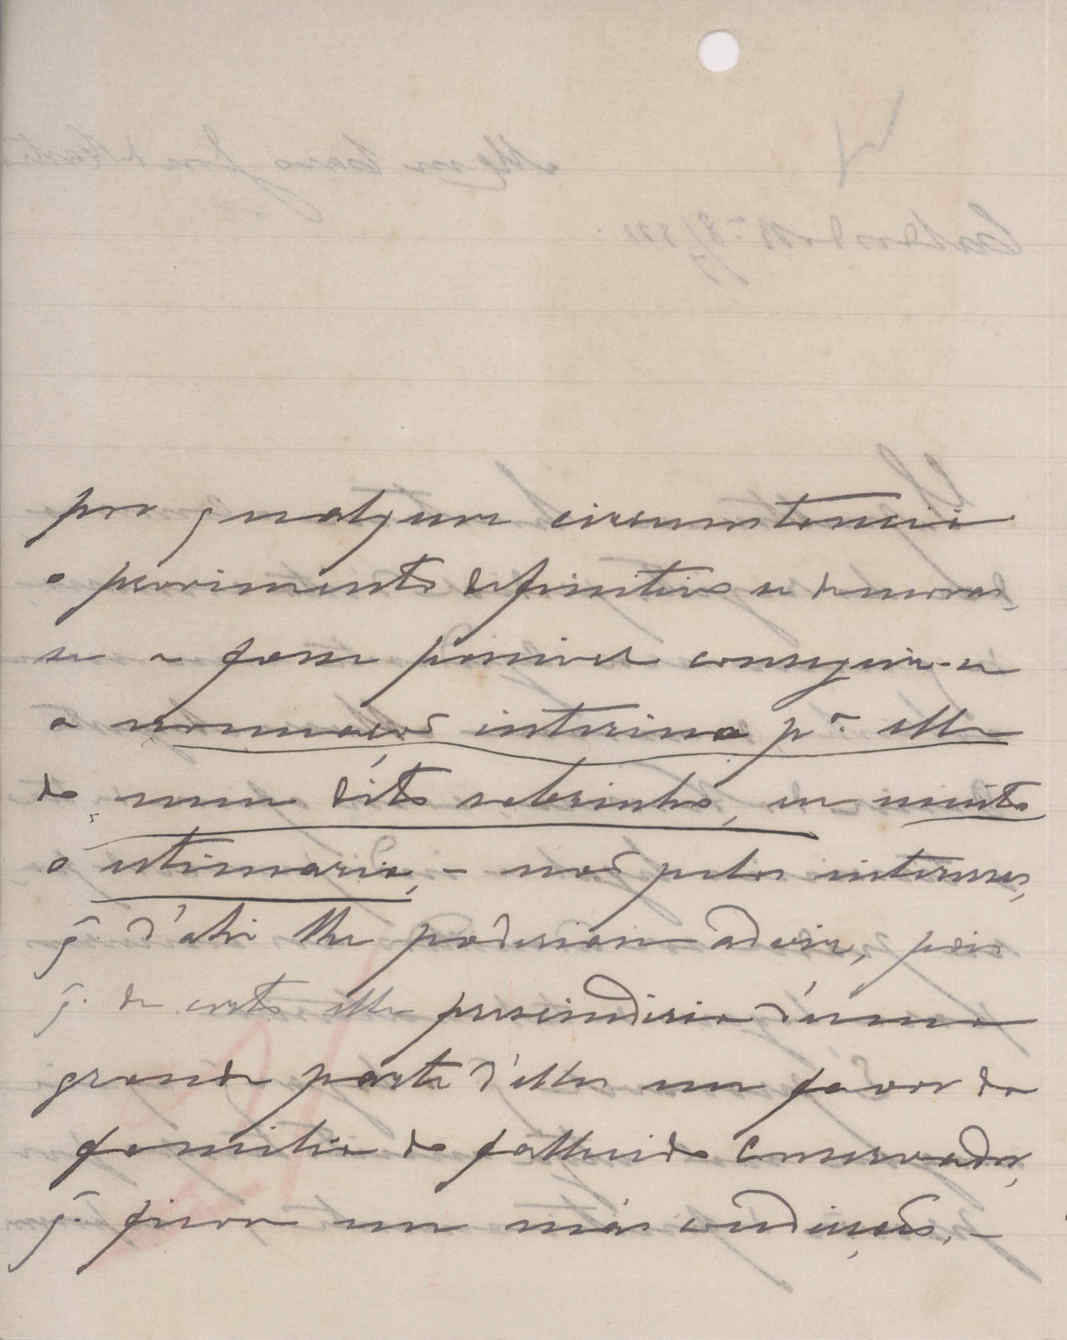 por qualquer circumstancia
o provimento definitivo se demoras-
se e fosse possivel conseguir-se
a nomeação interina p.ª elle
do meu dito sobrinho, eu muito
o estimaria, - não pelos interesses,
q. d'ahi lhe poderiam advir, pois
q. de certo elle prescindiria d'uma
grande parte d'elles em favor da
familia do fallecido Conservador,
q. ficou em más condições. -